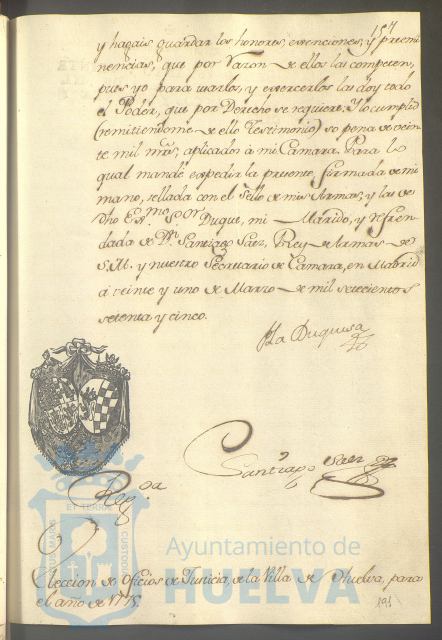 157
y hagais guardar los honores, esenciones, y preemi
nencias, que por razon de ellos las competen,
pues yo para usarlos, y exercerlos las doy todo
el Poder, que por Derecho se requiere: Y lo cumplid
(remitiendome de ello Testimonio) so pena de vein
te mil mrs, aplicados á mi Camara. Para lo
qual mandé expedir la presente, firmada de mi
mano, sellada con el Sello de mis Armas, y las de
dho Exmo. Sor Duque, mi Marido, y refren
dada de Dn. Santiago Saez, Rey de Armas de
S.M. y nuestro Secretario de Camara, en Madrid
á veinte y uno de Marzo de mil setecientos
setenta y cinco.
La Duquesa
Santiago Saez
Reg.da
ET TERRAE
CUSTODIA
Ayuntamiento de
HUELVA
Eleccion de Oficios de Justicia, de la Villa de Huelva, para
el año de 1775.